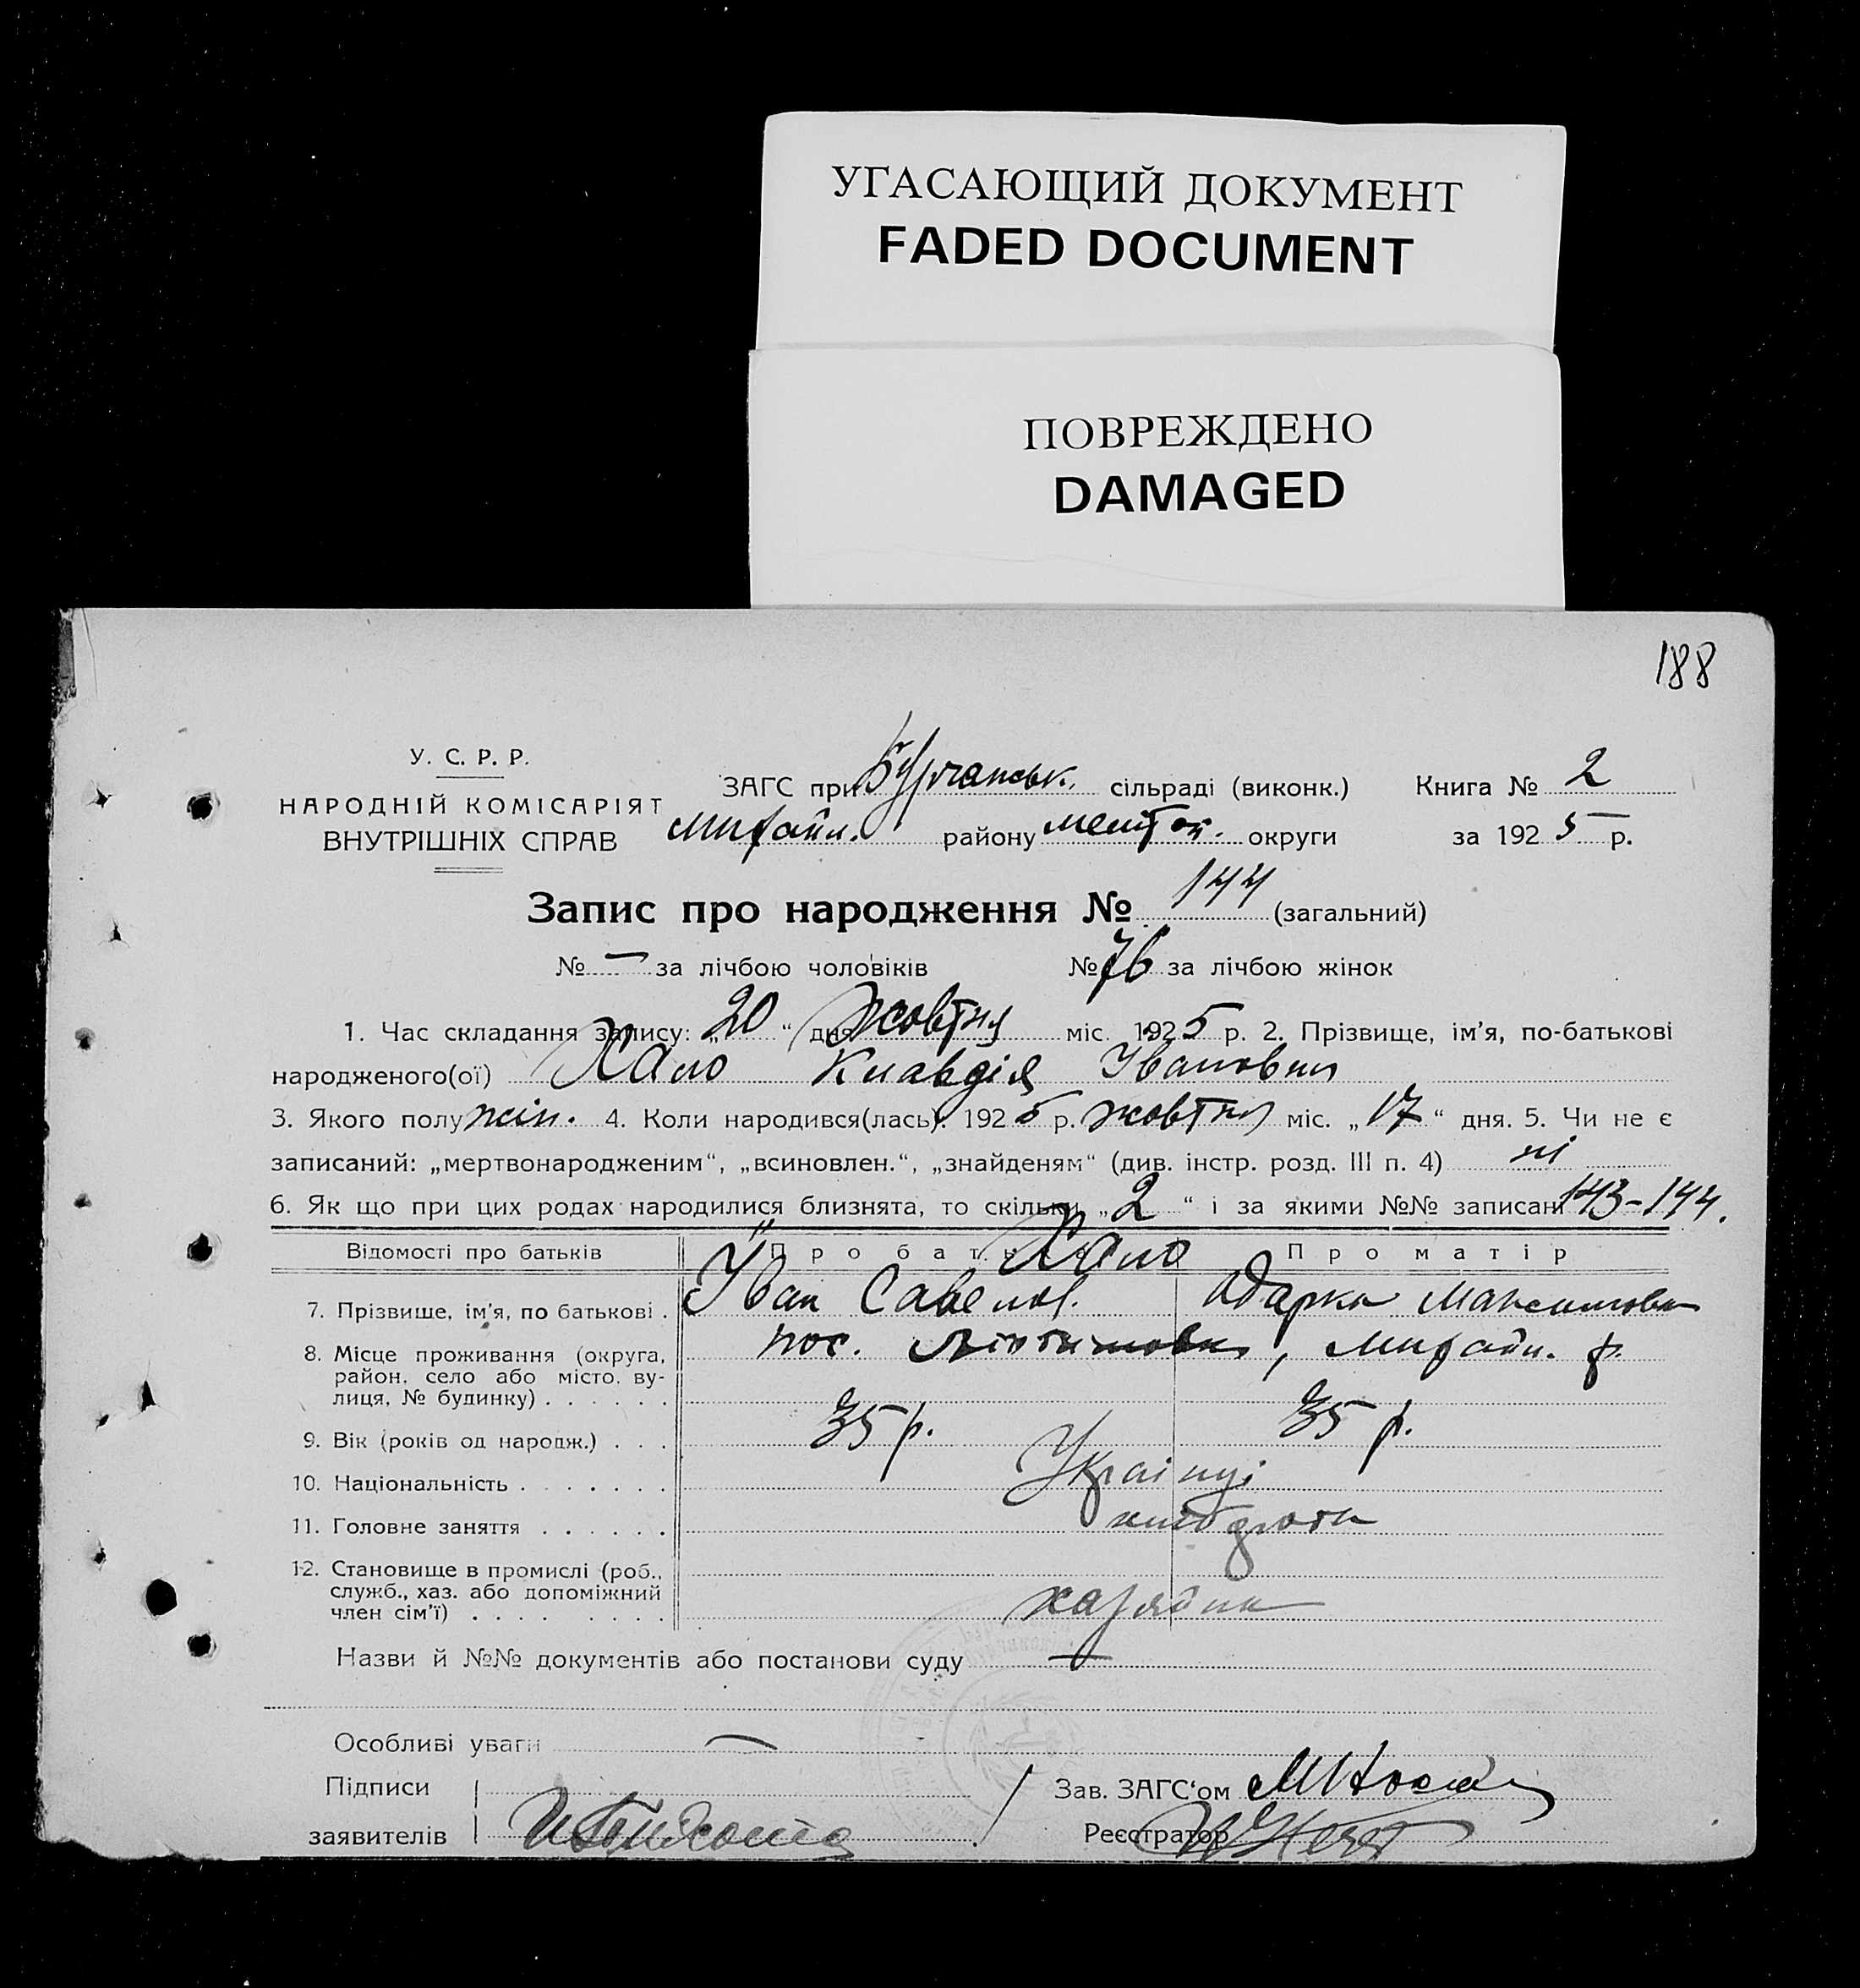 УГАСАЮЩИЙ ДОКУМЕНТ
FADED DOCUMENT
ПОВРЕЖДЕНО
DAMAGED
188
У. С. Р. Р.
НАРОДНІЙ КОМІСАРІЯТ
ВНУТРІШНІХ СПРАВ
ЗАГС при Бурчанськ. сільраді (виконк.) Книга № 2
Михайл. району мелітоп. округи за 1925 р.
Запис про народження № 144 (загальний)
№ — за лічбою чоловіків № 76 за лічбою жінок
1. Час складання запису: „20“ дня жовтня міс. 1925 р. 2. Прізвище, ім’я, по-батькові
народженого(ої) Хало Клавдія Івановна
3. Якого полу жін. 4. Коли народився(лась). 1925 р. жовтня міс. „17“ дня. 5. Чи не є
записаний: „мертвонародженим“, „всиновлен.“, „знайденям“ (див. інстр. розд. III п. 4) ні
6. Як що при цих родах народилися близнята, то скільки „2“ і за якими №№ записані 143-144.
Відомості про батьків Про батька Хало Про матір
7. Прізвище, ім’я, по батькові . Іван Савелов. Одарка Максимовна
8. Місце проживання (округа, район, село або місто, вулиця, № будинку) . . . . . . пос. , Михайл. р.
9. Вік (років од нарояж.) . . . 35 р. 35 р.
10. Національність . . . . . . . Українці
11. Головне заняття . . . . . .
12. Становище в промислі (роб., служб., хаз. або допоміжний член сім’ї) . . . . . . . . . хазяїни
Назви й №№ документів або постанови суду —
Особливі уваги —
Підписи
заявителів
Зав. ЗАГС‘ом
Реєстратор